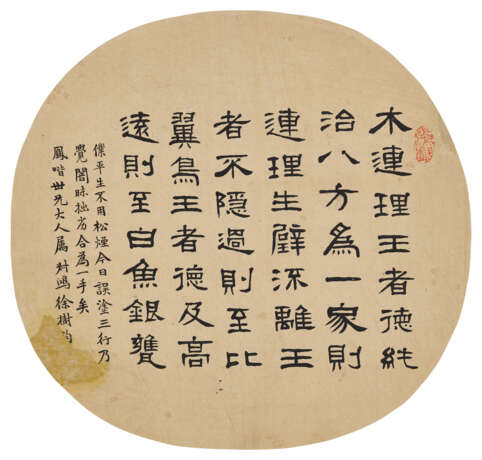 木連理王者德純
洽八方為一家則
連理生璧流離王
者不隱過則至比
翼鳥王者德及高
遠則至白魚銀甕
僕平生不用松煙今日誤塗三行乃
覺闇昧拙劣合為一手矣
鳳喈世兄大人屬 尗鴻徐樹鈞